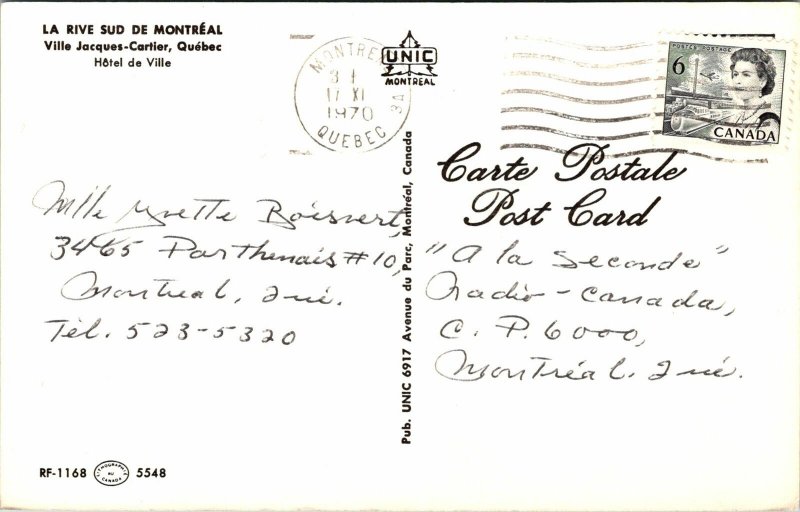 LA RIVE SUD DE MONTRÉAL
Ville Jacques-Cartier, Québec
Hôtel de Ville
MONTREAL
17 XI
1970
QUEBEC
3A
UNIC
MONTREAL
POSTES POSTAGE
6
CANADA
Carte Postale
Post Card
Mlle Yvette Boisvert,
3465 Parthenais #10,
Montreal, Qué.
Tél. 523-5320
Pub. UNIC 6917 Avenue du Parc, Montréal, Canada
"A la Seconde"
Radio-Canada,
C. P. 6000,
Montréal. Qué.
RF-1168
LITHOGRAPHIÉ
AU
CANADA
5548